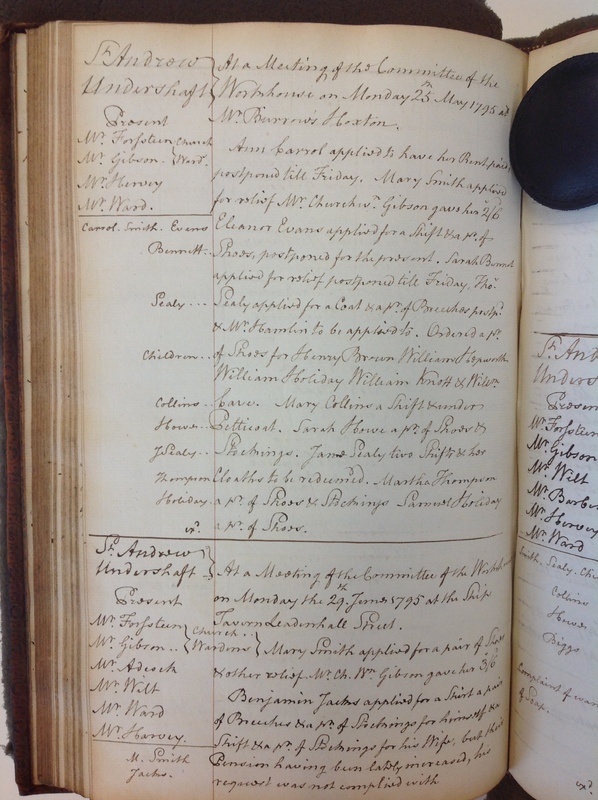 St. Andrew
Undershaft
Present
Mr. Forsteen Church
Mr. Gibson. Ward.
Mr. Hervey
Mr. Ward.
Carrol. Smith. Evans
Bennett..
Sealy...
Children..
Collins.
Howe..
J Sealy..
Thompson
Holiday.
At a Meeting of the Committee of the
Workhouse on Monday 25th May 1795 at
Mr. Burrows Hoxton.
Ann Carrol applied to have her Rent paid,
postponed till Friday. Mary Smith applied
for relief Mr. Gibson gave her 2/6
Eleanor Evans applied for a Shift & a pr. of
Shoes, postponed for the present. Sarah Bennet
applied for relief postponed till Friday. Tho.
Sealy applied for a Coat & a pr. of Breeches postpd.
& Mr. Hamlin to be applied to. Ordered a pr.
of Shoes for Henry Brown William Hepworth
William Holiday William Knott & Willm.
Cave. Mary Collins a Shift & under
Petticoat. Sarah Howe a pr. of Shoes &
Stockings. Jane Sealy two Shifts & her
Cloaths to be redeemed. Martha Thompson
a pr. of Shoes & Stockings Samuel Holiday
a pr. of Shoes.
St. Andrew
Undershaft
Present
Mr. Forsteen Church
Mr. Gibson.. Wardens
Mr. Wilt
Mr. Ward
Mr. Harvey.
M. Smith
Jacks.
At a Meeting of the Committee of the
on Monday the 29th. June 1795 at the Ship
Tavern Leadenhall Street.
Mary Smith applied for a pair of Shoes
& other relief Mr. Ch. Wn. Gibson gave her 3/6
Benjamin Jacks applied for a Shirt a pair
of Breeches & a pr. of Stockings for himself & a
Shift & a pr. of Stockings for his Wife, but their
Pension having been lately increased, his
request was not complied with
St. And
Unders
Present
Mr. Forsteen
Mr. Gibson
Mr. Wilt
Mr. Barber
Mr. Hervey
Mr. Ward
Smith. Sealy. Chi
Collins
Howe.
Biggs
Complaint of wan
of Soap.
exd.